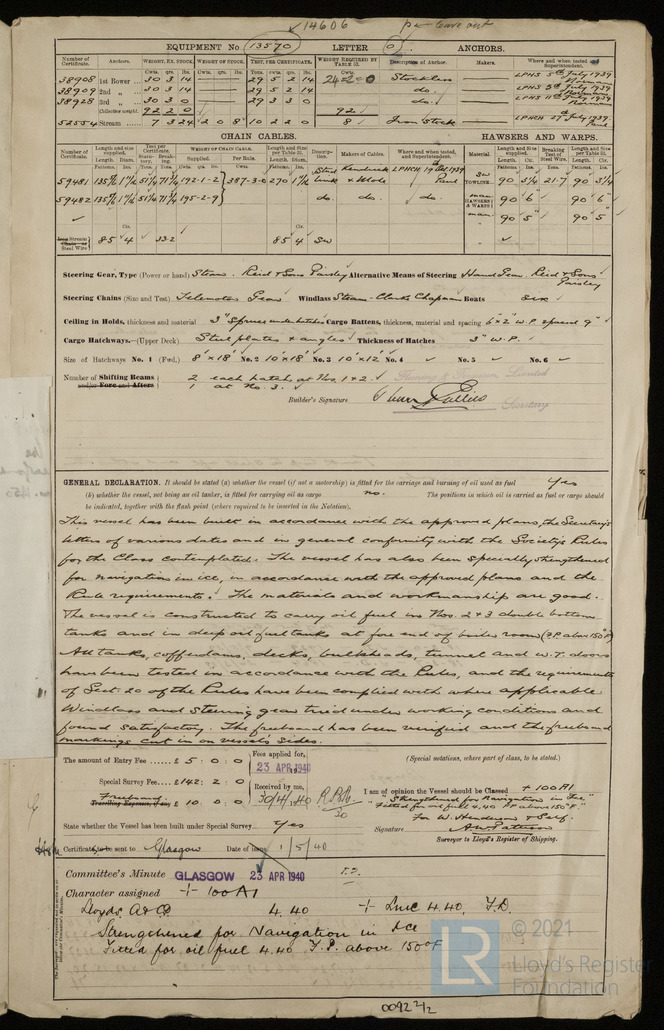 14606
EQUIPMENT No 13570 LETTER O. ANCHORS.
Number of Certificate. Anchors. WEIGHT, EX. STOCK. WEIGHT OF STOCK. TEST, PER CERTIFICATE. WEIGHT REQUIRED BY TABLE 53. Description of Anchor. Makers. Where and when tested and Superintendent.
38908 1st Bower 30 3 14 29 5 2 14 Stockless LPHS 5th July 1939
38909 2nd " 30 3 14 29 5 2 14 do. LPHS
38928 3rd " 30 3 0 29 3 3 0 do. LPHS 11th July 1939
Collective weight. 92 2 0 92
52554 Stream 7 3 24 2 0 8 10 2 2 0 8 Iron Stock LPHCH 27th July 1939
CHAIN CABLES. HAWSERS AND WARPS.
Number of Certificate. Length and size supplied. Test per Certificate. WEIGHT OF CHAIN CABLE. Length and Size per Table 53. Description. Makers of Cables. Where and when tested, and Superintendent. Material. Length and Size supplied. Breaking Test of Steel Wire. Length and Size per Table 53.
Fathoms. Diam. Supplied. Per Rule. Fathoms. Diam.
59481 192-1-2 387-3-0 270 Stud Link Kendrick & Mole LPHCH TOWLINE 90 3¼ 21·7 90 3¼
59482 195-2-9 do. do. do. HAWSERS & WARPS 90 6" 90 6"
90 5" 90 5
Stream Steel Wire 85 4 33·2 85 4 SW
Steering Gear, Type (Power or hand) Steam. Reid & Sons Paisley Alternative Means of Steering Hand Gear. Reid & Sons Paisley
Steering Chains (Size and Test) Telemotor Gear Windlass Steam - Clarke Chapman Boats six
Ceiling in Holds, thickness and material 3" Spruce under hatches Cargo Battens, thickness, material and spacing 6"x2" W.P. spaced 9"
Cargo Hatchways.—(Upper Deck) Steel plates & angles Thickness of Hatches 3" W.P.
Size of Hatchways No. 1 (Fwd.) 8' x 18' No. 2 10' x 18' No. 3 10' x 12' No. 4 No. 5 No. 6
Number of Shifting Beams 2 each hatch at Nos. 1 & 2.
and/or Fore and Afters 1 at No. 3.
Fleming & Ferguson Limited
Builder's Signature
Secretary
GENERAL DECLARATION. It should be stated (a) whether the vessel (if not a motorship) is fitted for the carriage and burning of oil used as fuel Yes
(b) whether the vessel, not being an oil tanker, is fitted for carrying oil as cargo no. The positions in which oil is carried as fuel or cargo should
be indicated, together with the flash point (where required to be inserted in the Notation).
This vessel has been built in accordance with the approved plans, the Secretary's
letters of various dates and in general conformity with the Society's Rules
for the Class contemplated. The vessel has also been specially strengthened
for navigation in ice, in accordance with the approved plans and the
Rule requirements. The materials and workmanship are good.
The vessel is constructed to carry oil fuel in Nos. 2 & 3 double bottom
tanks and in deep oil fuel tanks at fore end of boiler room (F.P. above 150°F)
All tanks, cofferdams, decks, bulkheads, tunnel and W.T. doors
have been tested in accordance with the Rules, and the requirements
of Sect. 20 of the Rules have been complied with where applicable.
Windlass and Steering gear tried under working conditions and
found satisfactory. The freeboard has been verified and the freeboard
markings cut in on vessel's sides.
The amount of Entry Fee £ 5 : 0 : 0 Fees applied for, 23 APR 1940
Special Survey Fee £ 142 : 2 : 0 Received by me, 30/4/40
Freeboard
Travelling Expenses, if any £ 10 : 0 : 0
(Special notations, where part of class, to be stated.)
I am of opinion the Vessel should be Classed + 100 A1
"Strengthened for Navigation in Ice"
"Fitted for oil fuel 4.40 F.P. above 150°F."
State whether the Vessel has been built under Special Survey Yes
For W. Henderson & Self.
Signature A. W. Patterson
Surveyor to Lloyd's Register of Shipping.
Certificate to be sent to Glasgow Date of issue 1/5/40
Committee's Minute GLASGOW 23 APR 1940
Character assigned + 100 A1
Lloyds A & CP 4.40 + LMC 4.40. F.D.
Strengthened for Navigation in Ice
Fitted for oil fuel 4.40 F.P. above 150°F
© 2021
LR
Lloyd's Register
Foundation
0092 2/2